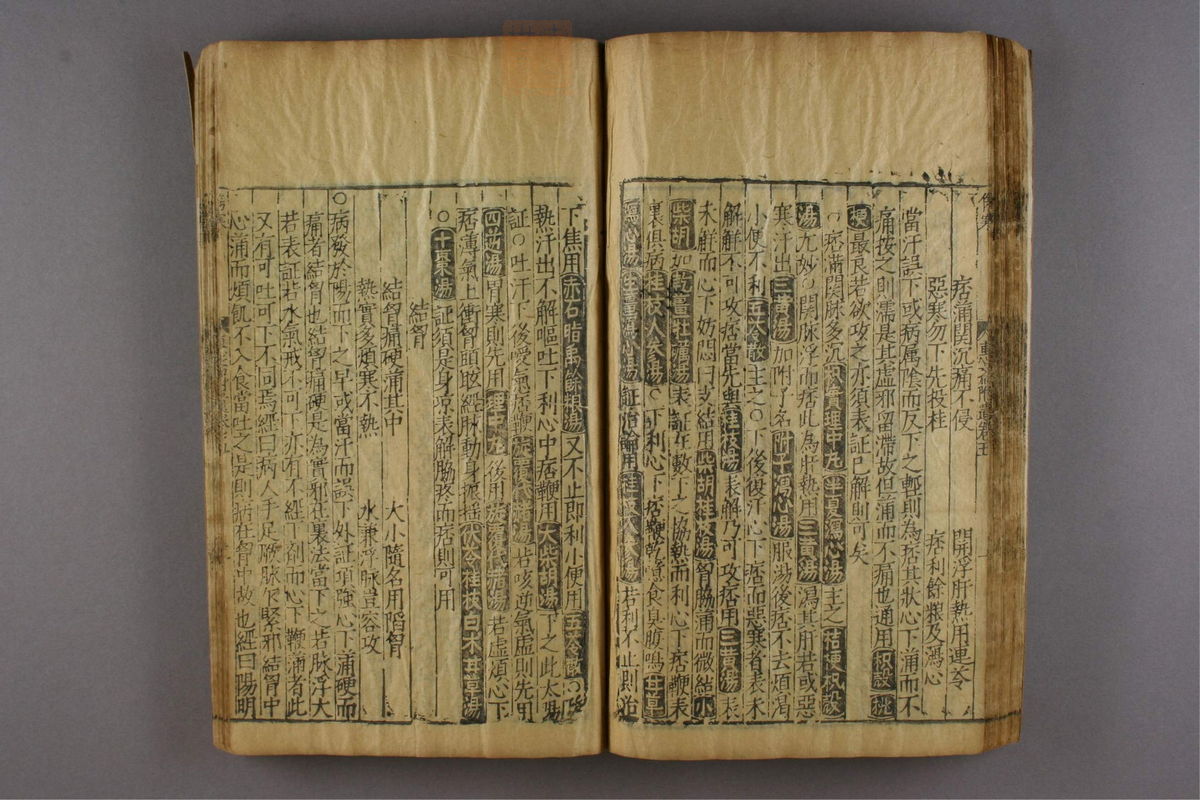 痞滿関沉痛不侵　開浮肝熱用連芩
惡寒勿下先投桂　痞利餘粮及瀉心
當汗誤下或病属陰而反下之暫則為痞其狀心下滿而不
痛按之則濡是其虛邪留滯故但滿而不痛也通用枳殼桃
梗最良若欲攻之亦須表証已解則可矣
○痞滿関脉多沉理中丸半夏瀉心湯主之桔梗枳殼
湯尤妙○関脉浮而痞此為肝熱用三黃湯瀉其肝若或惡
寒汗出三黃湯加附子名附子瀉心湯服湯後痞不去煩渴
小便不利五苓散主之○下後復汗心下痞而惡寒者表未
解解不可攻痞當先與桂枝湯表解乃可攻痞用三黃湯表
未觧而心下妨悶曰支結用柴胡桂枝湯胷脇滿而微結小
柴胡加乾薑牡蠣湯表証在數下之協熱而利心下痞鞕表
裏俱病桂枝人参湯○下利心下痞鞕乾噫食臭腹鳴甘草
瀉心湯生薑瀉心湯証治論用桂枝人参湯若利不止則治
下焦用赤石脂禹餘粮湯又不止即利小便用五苓散○
熱汗出不解嘔吐下利心中痞鞕用大柴胡湯下之此太陽
証○吐汗下後噫氣痞鞕旋覆代赭湯若咳逆氣虛則先用
四逆湯胃寒則先用理中丸後用旋覆代赭湯若虛煩心下
痞滿氣上衝胷頭眩經脉動身振搖茯苓桂枝白术甘草湯
○十棗湯証須是身凉表解脇疼而痞則可用
結胷
結胷痛硬滿其中　大小隨名用陷胷
熱實多煩寒不熱　水兼浮脉豈容攻
○病發於陽而下之早或當汗而誤下外証項強心下滿硬而
痛者結胷也結胷痛硬是為實邪在裏法當下之若脉浮大
若表証若水氣戒不可下亦有不經下劑而心下鞕滿者此
又有可吐可下不同焉經曰病人手足厥脉乍緊邪結胷中
心滿而煩飢不入食當吐之是則病在胷中故也經曰陽明